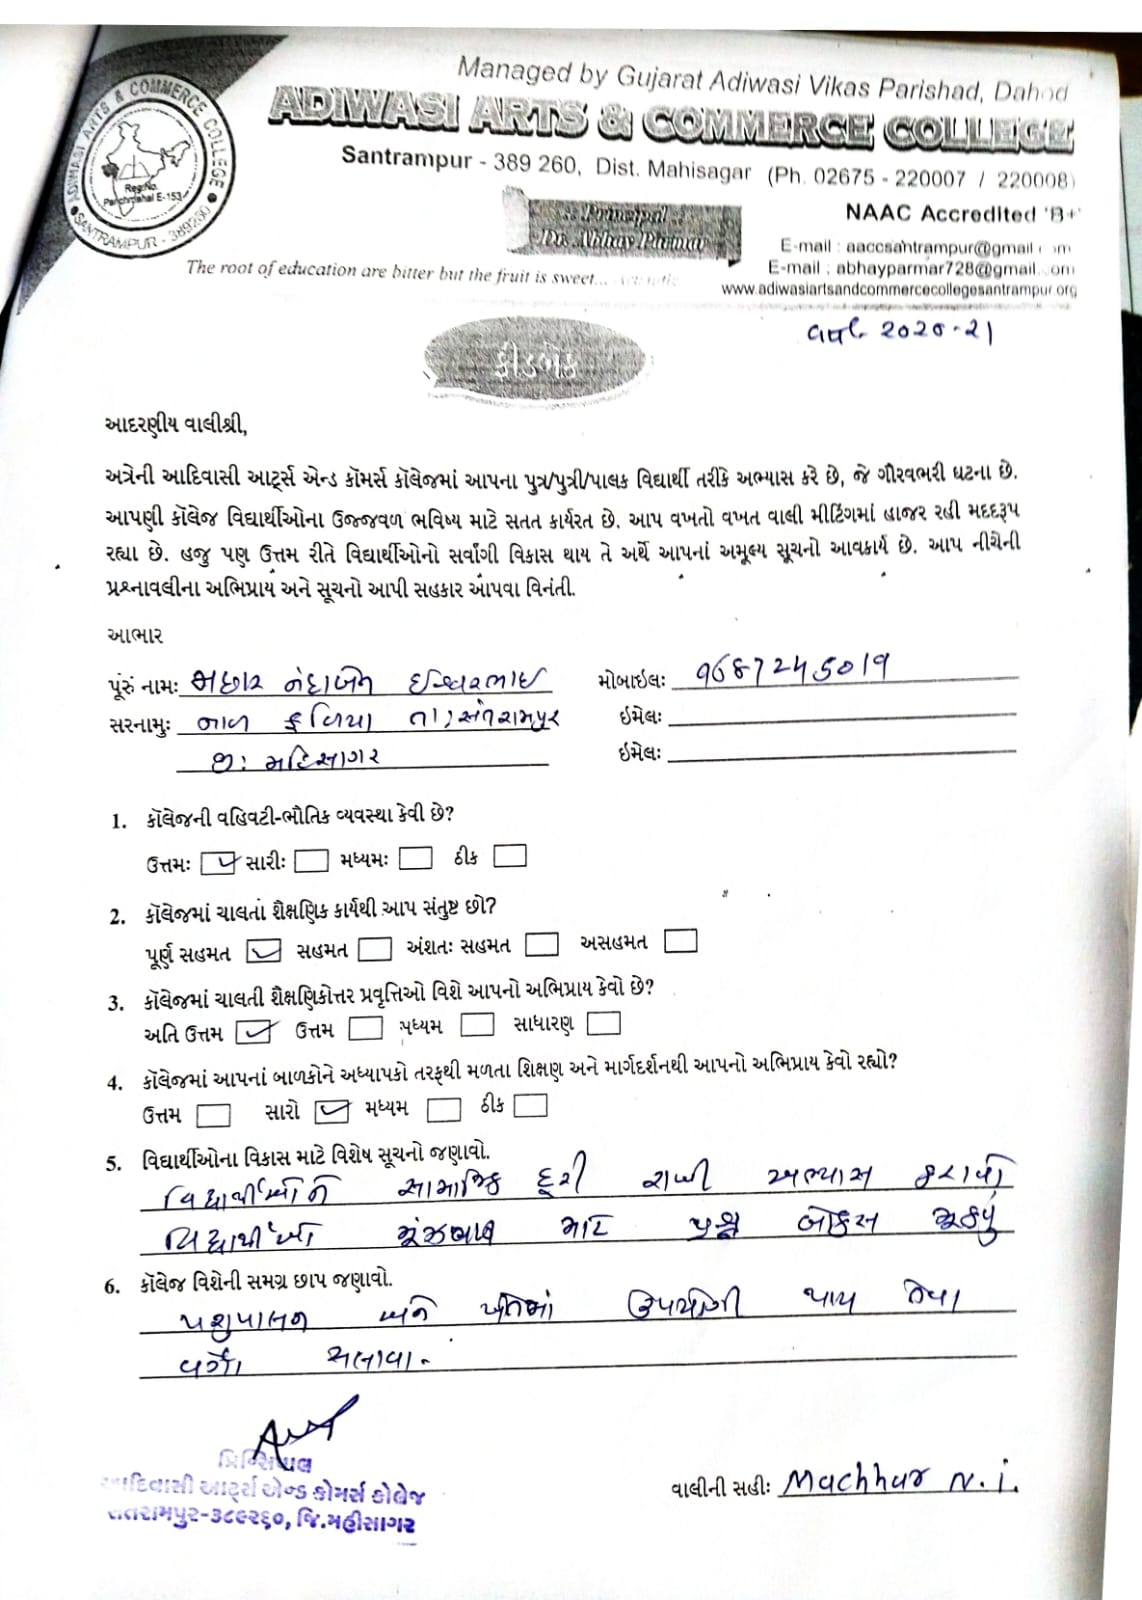 Managed by Gujarat Adiwasi Vikas Parishad, Dahod
ADIWASI ARTS & COMMERCE COLLEGE
Santrampur - 389 260, Dist. Mahisagar (Ph. 02675 - 220007 / 220008)
ADIWASI ARTS & COMMERCE COLLEGE
Reg.No.
Panchmahal E-153
SANTRAMPUR - 389260
NAAC Accredited 'B+'
:: Principal ::
Dr. Abhay Parmar
E-mail : aaccsantrampur@gmail.com
E-mail : abhayparmar728@gmail.com
The root of education are bitter but the fruit is sweet...
www.adiwasiartsandcommercecollegesantrampur.org
વર્ષ 2020-21
ફીડબેક
આદરણીય વાલીશ્રી,
અત્રેની આદિવાસી આર્ટ્સ એન્ડ કૉમર્સ કૉલેજમાં આપના પુત્ર/પુત્રી/પાલક વિદ્યાર્થી તરીકે અભ્યાસ કરે છે, જે ગૌરવભરી ઘટના છે.
આપણી કૉલેજ વિદ્યાર્થીઓના ઉજ્જવળ ભવિષ્ય માટે સતત કાર્યરત છે. આપ વખતો વખત વાલી મીટિંગમાં હાજર રહી મદદરૂપ
રહ્યા છે. હજુ પણ ઉત્તમ રીતે વિદ્યાર્થીઓનો સર્વાંગી વિકાસ થાય તે અર્થે આપનાં અમૂલ્ય સૂચનો આવકાર્ય છે. આપ નીચેની
પ્રશ્નાવલીના અભિપ્રાય અને સૂચનો આપી સહકાર આપવા વિનંતી.
આભાર
પૂરું નામઃ મછાર નંદાબેન ઈશ્વરભાઈ મોબાઇલઃ 9687245019
સરનામુઃ માળ ફળિયા તા: સંતરામપુર ઇમેલઃ
જી: મહિસાગર ઇમેલઃ
1. કૉલેજની વહિવટી-ભૌતિક વ્યવસ્થા કેવી છે?
ઉત્તમઃ સારીઃ મધ્યમઃ ઠીક
2. કૉલેજમાં ચાલતાં શૈક્ષણિક કાર્યથી આપ સંતુષ્ટ છો?
પૂર્ણ સહમત સહમત અંશતઃ સહમત અસહમત
3. કૉલેજમાં ચાલતી શૈક્ષણિકોત્તર પ્રવૃત્તિઓ વિશે આપનો અભિપ્રાય કેવો છે?
અતિ ઉત્તમ ઉત્તમ મધ્યમ સાધારણ
4. કૉલેજમાં આપનાં બાળકોને અધ્યાપકો તરફથી મળતા શિક્ષણ અને માર્ગદર્શનથી આપનો અભિપ્રાય કેવો રહ્યો?
ઉત્તમ સારો મધ્યમ ઠીક
5. વિદ્યાર્થીઓના વિકાસ માટે વિશેષ સૂચનો જણાવો.
વિદ્યાર્થીઓને સામાજિક દૂરી રાખી અભ્યાસ કરાવો
વિદ્યાર્થીઓ મૂંઝવણ માટે પ્રશ્ન બોક્સ મૂકવું
6. કૉલેજ વિશેની સમગ્ર છાપ જણાવો.
પશુપાલન અને ખેતિમાં ઉપયોગી થાય તેવા
વર્ગો ચલાવા.
પ્રિન્સિપાલ
આદિવાસી આર્ટ્સ એન્ડ કોમર્સ કોલેજ
સંતરામપુર-૩૮૯૨૬૦, જિ.મહીસાગર
વાલીની સહીઃ Machhar N. I.